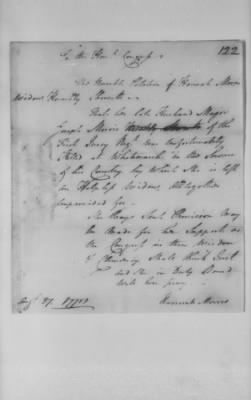 122
To the Honl. Congress
The Humble Petition of Hannah Morris
Widow Humbly Sheweth
That her late Husband Major
Joseph Morris of the
First Jersey Regt was Unfortunately
Killed at Whitemarsh in the Service
of his Country by Which She is left
an Helpless Widow, Altogether
unprovided for
She Prays Some Provision May
be Made for her Support as
the Congress in their Wisdom
& Clemency Shall think Just
and She in Duty Bound
Will Ever pray
Hannah Morris
27